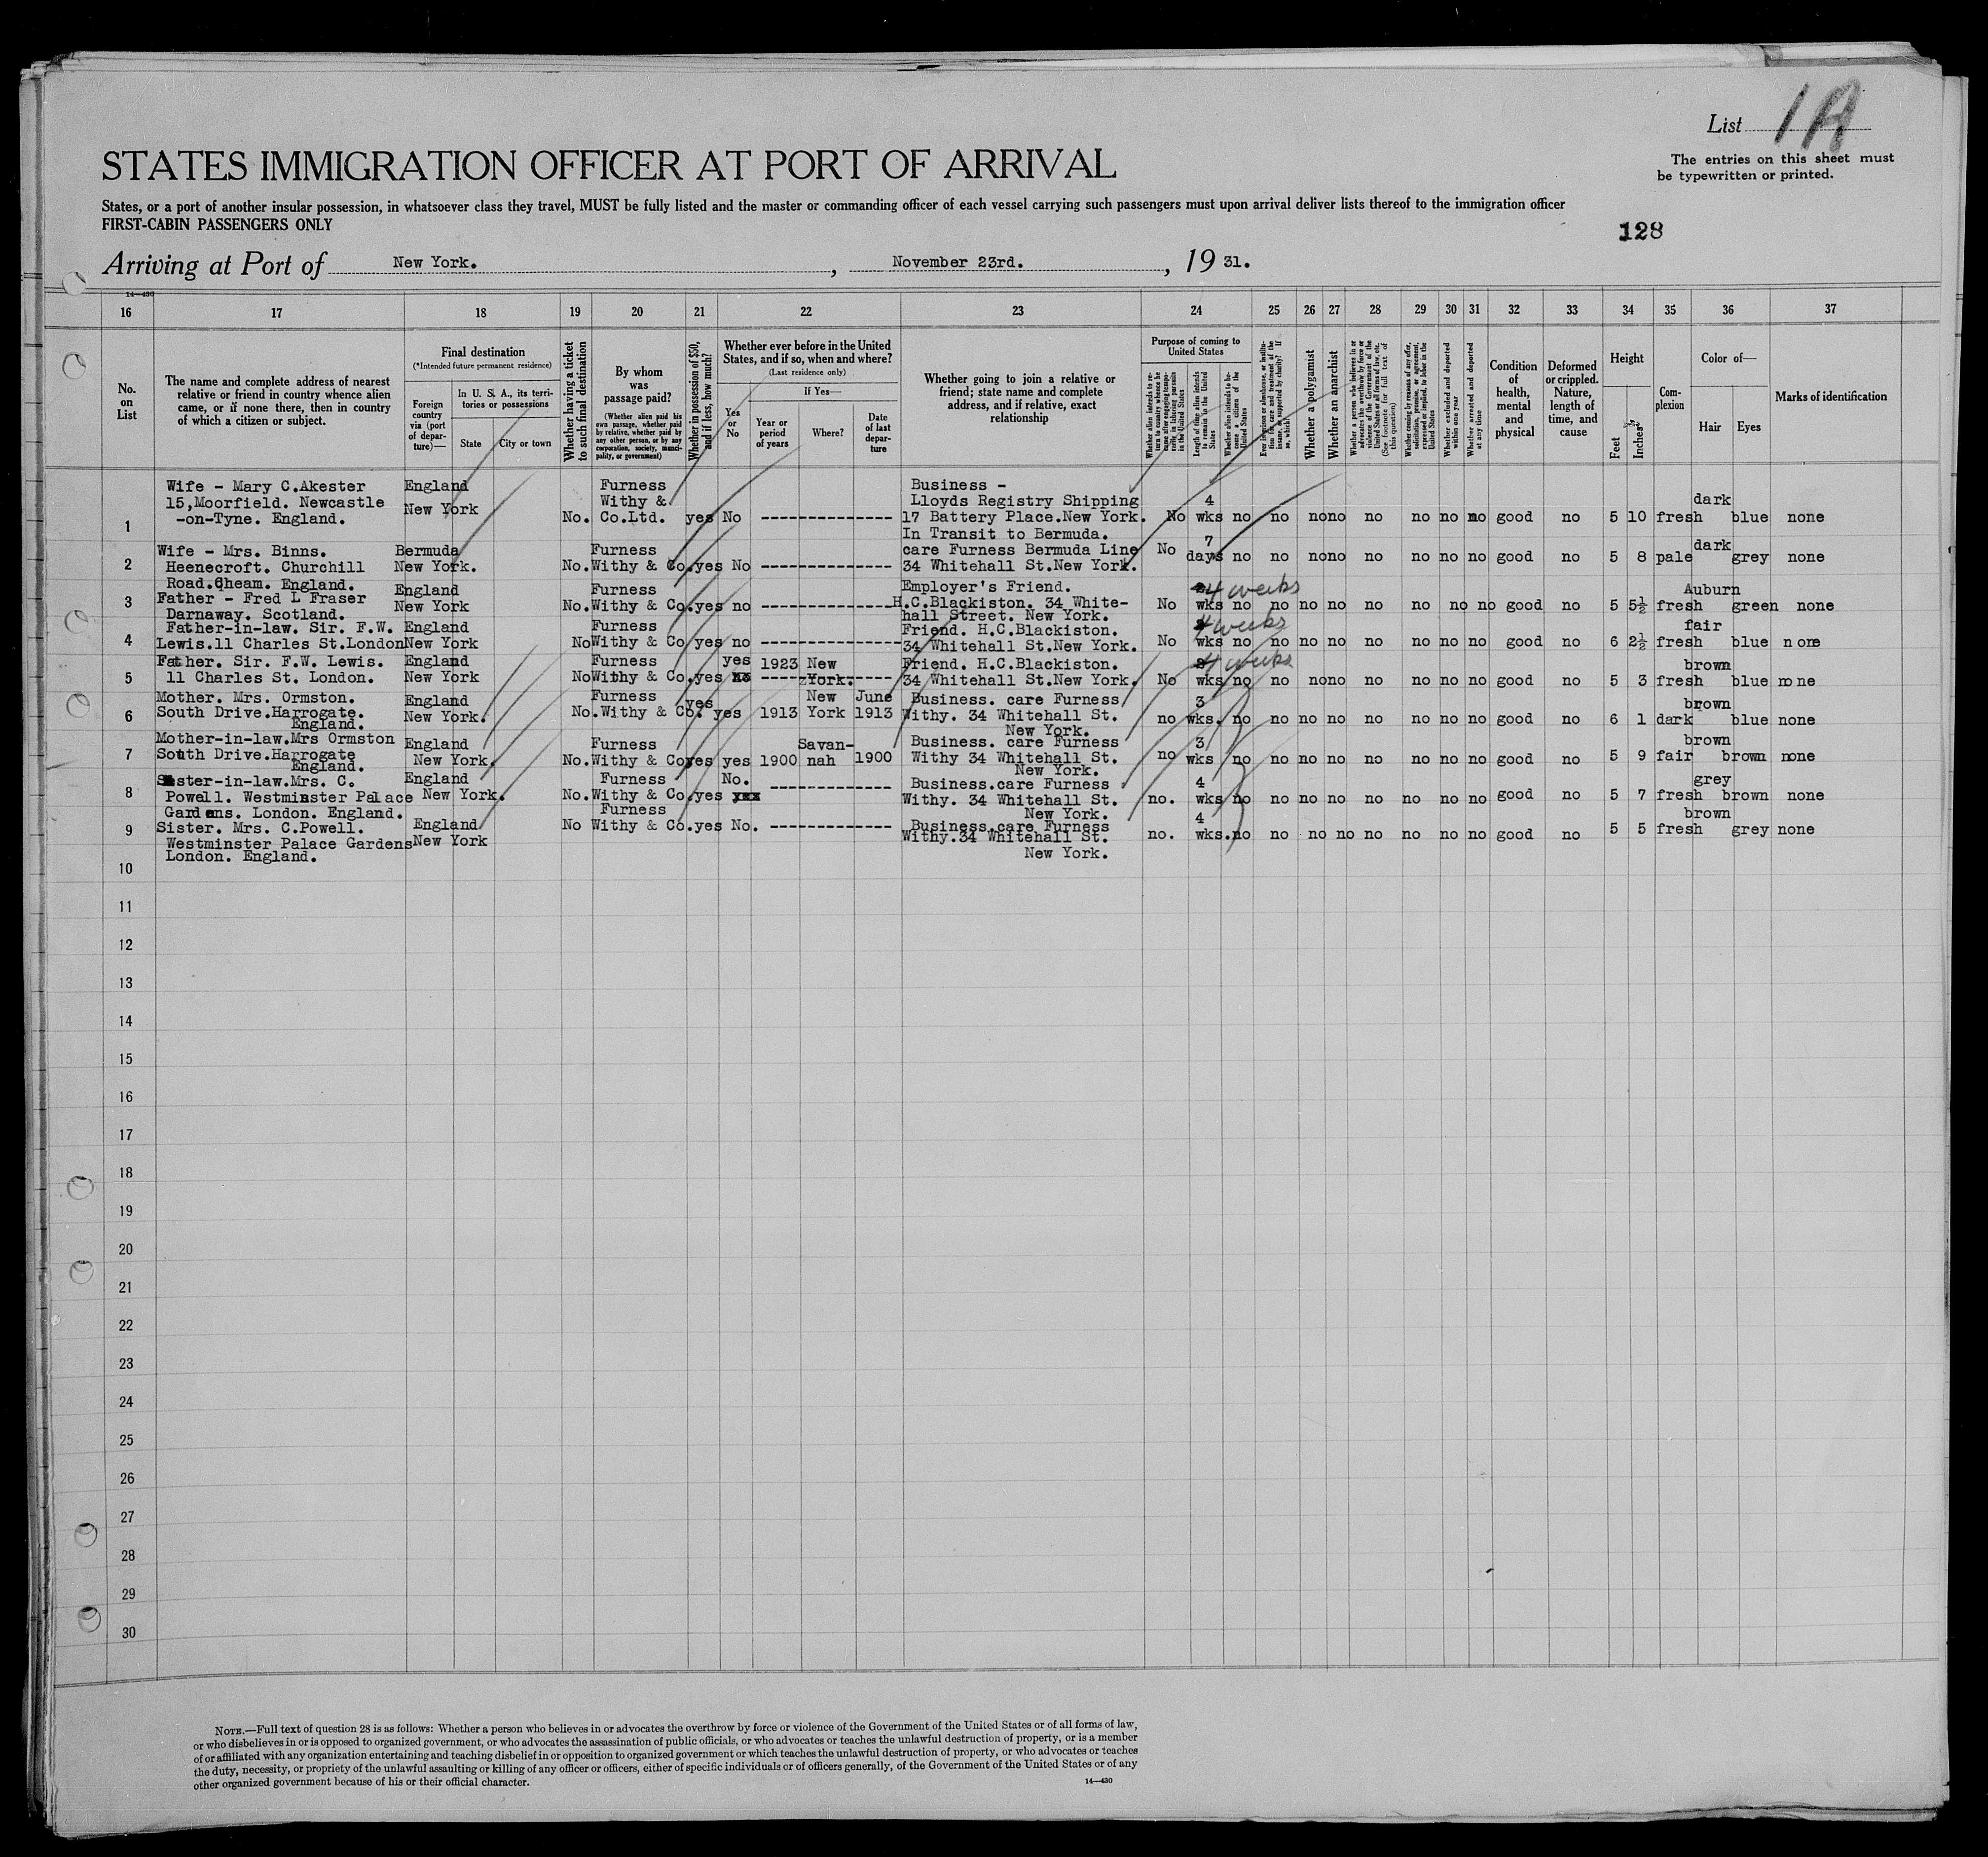 List 1A
The entries on this sheet must
be typewritten or printed.
STATES IMMIGRATION OFFICER AT PORT OF ARRIVAL
States, or a port of another insular possession, in whatsoever class they travel, MUST be fully listed and the master or commanding officer of each vessel carrying such passengers must upon arrival deliver lists thereof to the immigration officer
FIRST-CABIN PASSENGERS ONLY
128
Arriving at Port of New York. , November 23rd. , 19 31.
14—430
16 17 18 19 20 21 22 23 24 25 26 27 28 29 30 31 32 33 34 35 36 37
No. on List
The name and complete address of nearest
relative or friend in country whence alien
came, or if none there, then in country
of which a citizen or subject.
Final destination
(*Intended future permanent residence)
Foreign country via (port of depar-ture)—
In U. S. A., its terri-tories or possessions
State
City or town
Whether having a ticket to such final destination
By whom was passage paid?
(Whether alien paid his own passage, whether paid by relative, whether paid by any other person, or by any corporation, society, munici-pality, or government)
Whether in possession of $50, and if less, how much?
Whether ever before in the United
States, and if so, when and where?
(Last residence only)
Yes or No
If Yes—
Year or period of years
Where?
Date of last depar-ture
Whether going to join a relative or
friend; state name and complete
address, and if relative, exact
relationship
Purpose of coming to United States
Length of time alien intends to remain in the United States
Whether alien intends to be-come a citizen of the United States
Whether a polygamist
Whether an anarchist
Whether excluded and deported within one year
Whether arrested and deported at any time
Condition of health, mental and physical
Deformed or crippled. Nature, length of time, and cause
Height
Feet
Inches
Com-plexion
Color of—
Hair
Eyes
Marks of identification
1 Wife - Mary C.Akester England Furness Business -
15,Moorfield. Newcastle New York Withy & Lloyds Registry Shipping 4 dark
-on-Tyne. England. No. Co.Ltd. yes No ---------------- 17 Battery Place.New York. No wks no no no no no no no no good no 5 10 fresh blue none
In Transit to Bermuda.
2 Wife - Mrs. Binns. Bermuda Furness care Furness Bermuda Line No 7 days no no no no no no no no good no 5 8 pale dark grey none
Heenecroft. Churchill New York. No. Withy & Co. yes No ---------------- 34 Whitehall St.New York.
Road. Cheam. England.
3 Father - Fred L Fraser England Furness Employer's Friend. 4 weeks Auburn
Darnaway. Scotland. New York No. Withy & Co. yes no ---------------- H.C.Blackiston. 34 White- No wks no no no no no no no no good no 5 5½ fresh green none
hall Street. New York.
4 Father-in-law. Sir. F.W. England Furness Friend. H.C.Blackiston. 4 weeks fair
Lewis.11 Charles St.London New York No Withy & Co yes no ---------------- 34 Whitehall St.New York. No wks no no no no no no no no good no 6 2½ fresh blue none
5 Father. Sir. F.W. Lewis. England Furness yes 1923 New Friend. H.C.Blackiston. 4 weeks brown
11 Charles St. London. New York No Withy & Co. yes York. 34 Whitehall St.New York. No wks no no no no no no no no good no 5 3 fresh blue none
6 Mother. Mrs. Ormston. England Furness yes New June Business. care Furness 3 brown
South Drive.Harrogate. New York. No. Withy & Co. yes 1913 York 1913 Withy. 34 Whitehall St. no wks. no no no no no no no no good no 6 1 dark blue none
England. New York.
7 Mother-in-law.Mrs Ormston England Furness Savan- Business. care Furness 3 brown
South Drive.Harrogate New York. No. Withy & Co yes yes 1900 nah 1900 Withy 34 Whitehall St. no wks no no no no no no no no good no 5 9 fair brown none
England. New York.
8 Sister-in-law.Mrs. C. England Furness No. Business.care Furness 4 grey
Powell. Westminster Palace New York. No. Withy & Co. yes ------------- Withy. 34 Whitehall St. no. wks no no no no no no no no good no 5 7 fresh brown none
Gardens. London. England. New York.
9 Sister. Mrs. C.Powell. England Furness Business.care Furness 4 brown
Westminster Palace Gardens New York No Withy & Co. yes No. ------------- Withy.34 Whitehall St. no. wks. no no no no no no no no good no 5 5 fresh grey none
London. England. New York.
10
11
12
13
14
15
16
17
18
19
20
21
22
23
24
25
26
27
28
29
30
NOTE.—Full text of question 28 is as follows: Whether a person who believes in or advocates the overthrow by force or violence of the Government of the United States or of all forms of law,
or who disbelieves in or is opposed to organized government, or who advocates the assassination of public officials, or who advocates or teaches the unlawful destruction of property, or is a member
of or affiliated with any organization entertaining and teaching disbelief in or opposition to organized government or which teaches the unlawful destruction of property, or who advocates or teaches
the duty, necessity, or propriety of the unlawful assaulting or killing of any officer or officers, either of specific individuals or of officers generally, of the Government of the United States or of any
other organized government because of his or their official character.
14—430